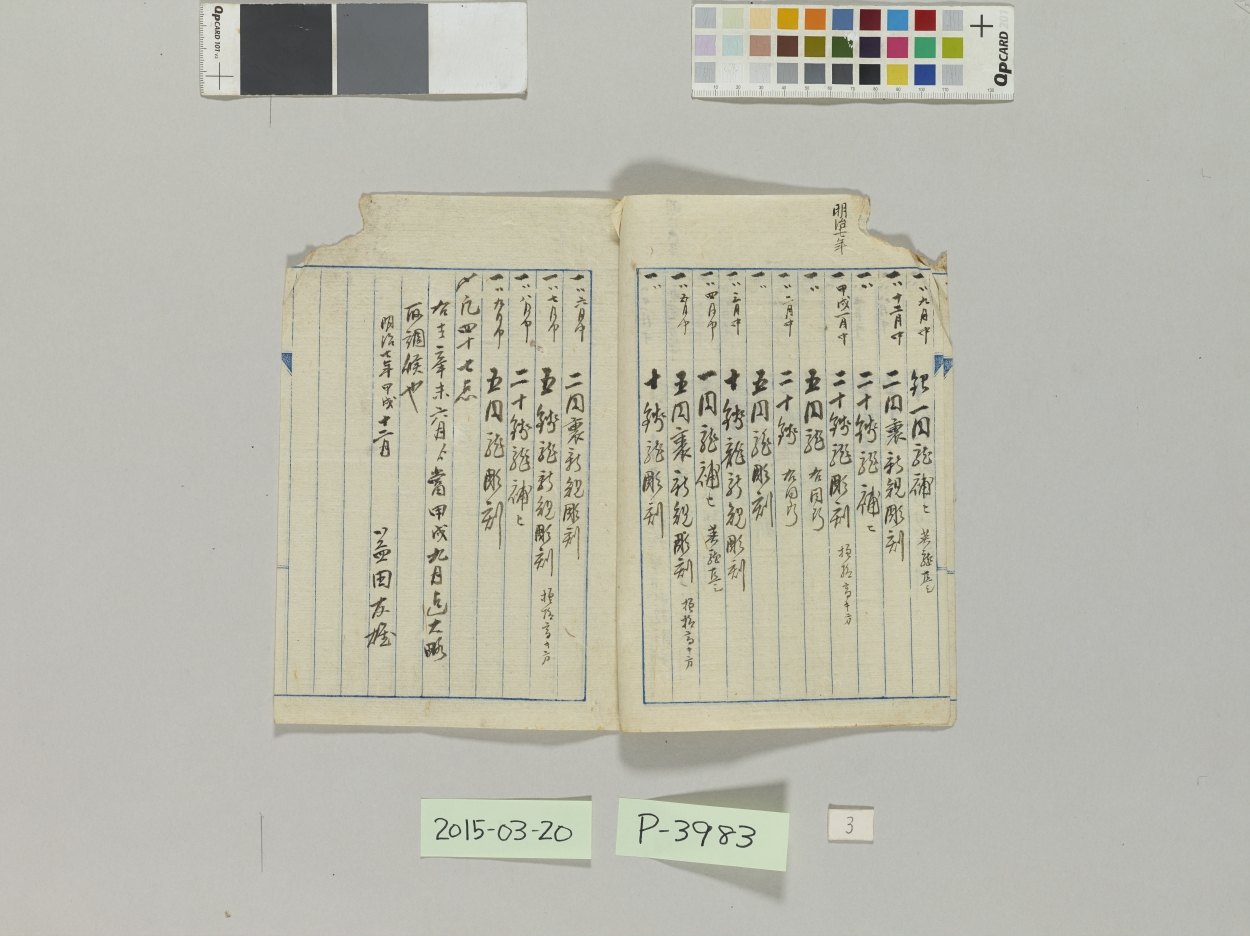 明治七年
一〃九月中 銀一円龍補ヒ
一〃十二月中 二円裏新規彫刻
一〃 二十銭龍補ヒ
一〃甲戌一月中 二十銭龍彫刻
一〃 五円龍 右同断
一〃二月中 二十銭 右同断
一〃 五円龍彫刻
一〃三月中 十銭龍新規彫刻
一〃四月中 一円龍補ヒ
一〃五月中 五円裏新規彫刻
一〃 十銭龍彫刻
一〃六月中 二円裏新規彫刻
一〃七月中 五銭龍新規彫刻
一〃八月中 二十銭龍補ヒ
一〃九月中 五円龍彫刻
〆凡四十七点
右者辛未六月ゟ當甲戌九月迄大略
取調候也
明治七年甲戌十二月
益田友雄
QPCARD 101 v3
QPCARD 201
2015-03-20
P-3983
3